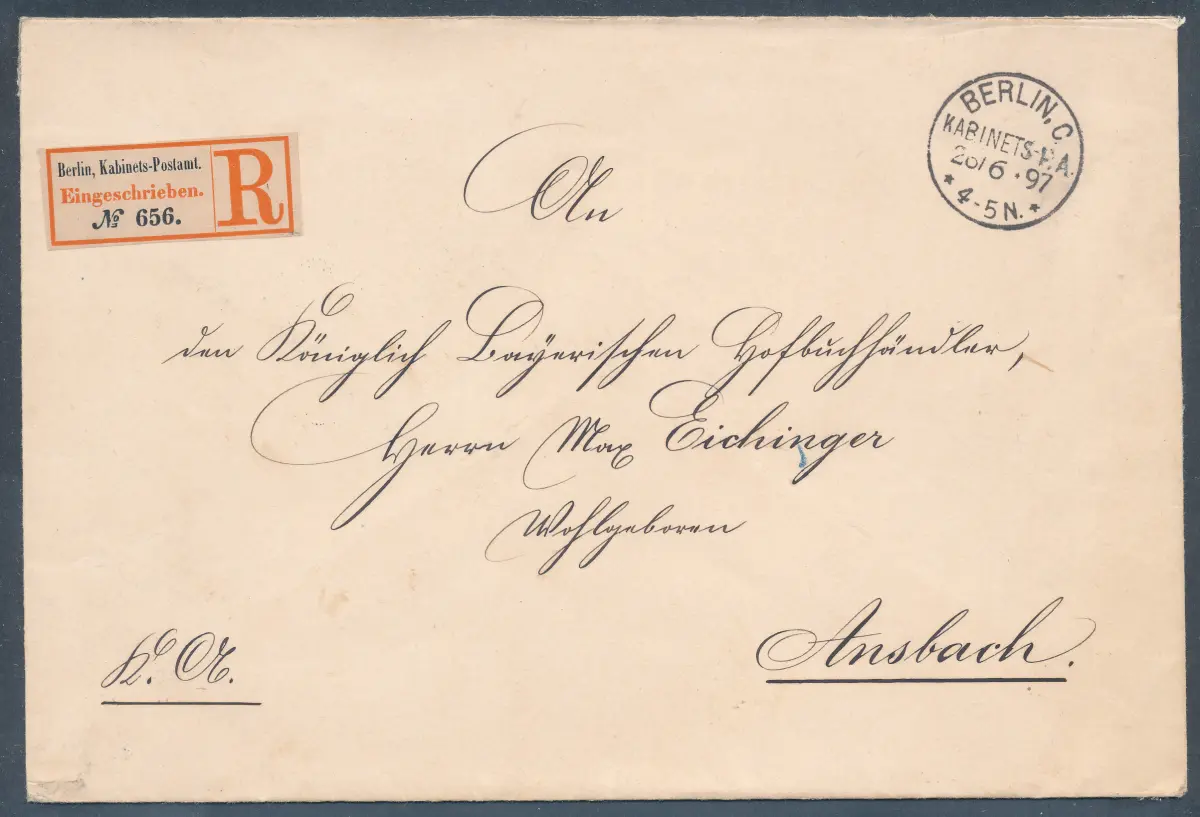 Berlin, Kabinets-Postamt.
Eingeschrieben.
№ 656.
R
BERLIN, C.
KABINETS-P.A.
26/6 . 97
* 4-5 N. *
An
den Königlich Bayerischen Hofbuchhändler,
Herrn Max Eichinger
Wohlgeboren
Ansbach.
K. A.